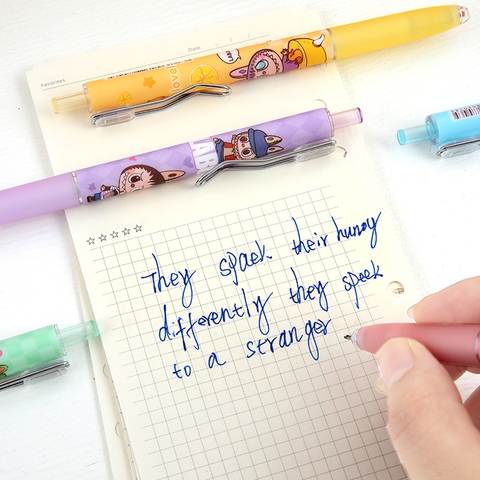 Favorites
Date
Love
LAB
☆☆☆☆☆
They spaek their hunoy
differently they speek
to a stranger